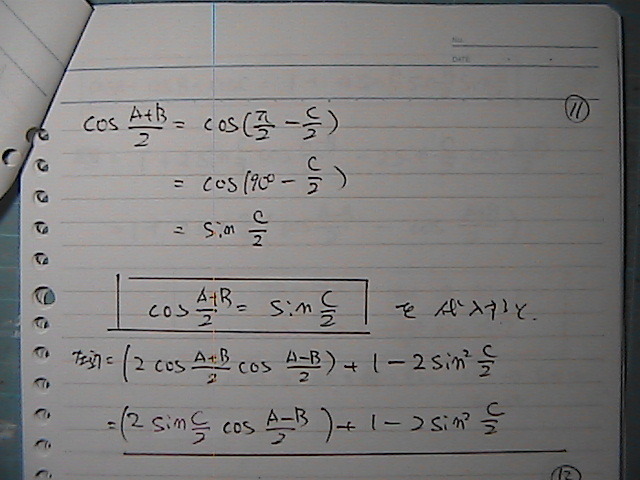 No.
DATE
⑪
cos (A+B)/2 = cos(π/2 − C/2)
= cos(90° − C/2)
= sin C/2
cos (A+B)/2 = sin C/2 を代入すると.
左辺 = (2 cos (A+B)/2 cos (A−B)/2) + 1 − 2 sin² C/2
= (2 sin C/2 cos (A−B)/2) + 1 − 2 sin² C/2
⑫